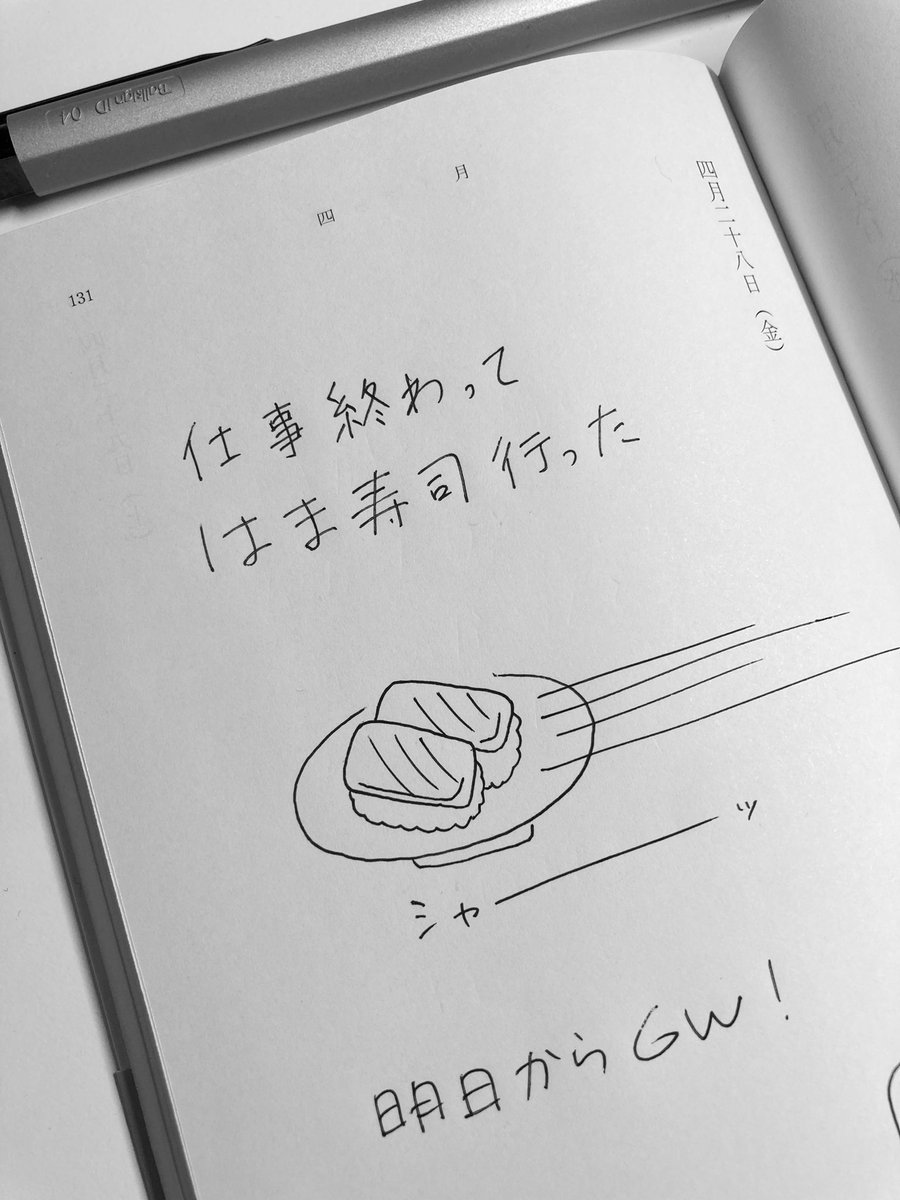 Ballsign iD 04
月
四
四月二十八日（金）
131
仕事終わって
はま寿司行った
シャーッ
明日からGW！